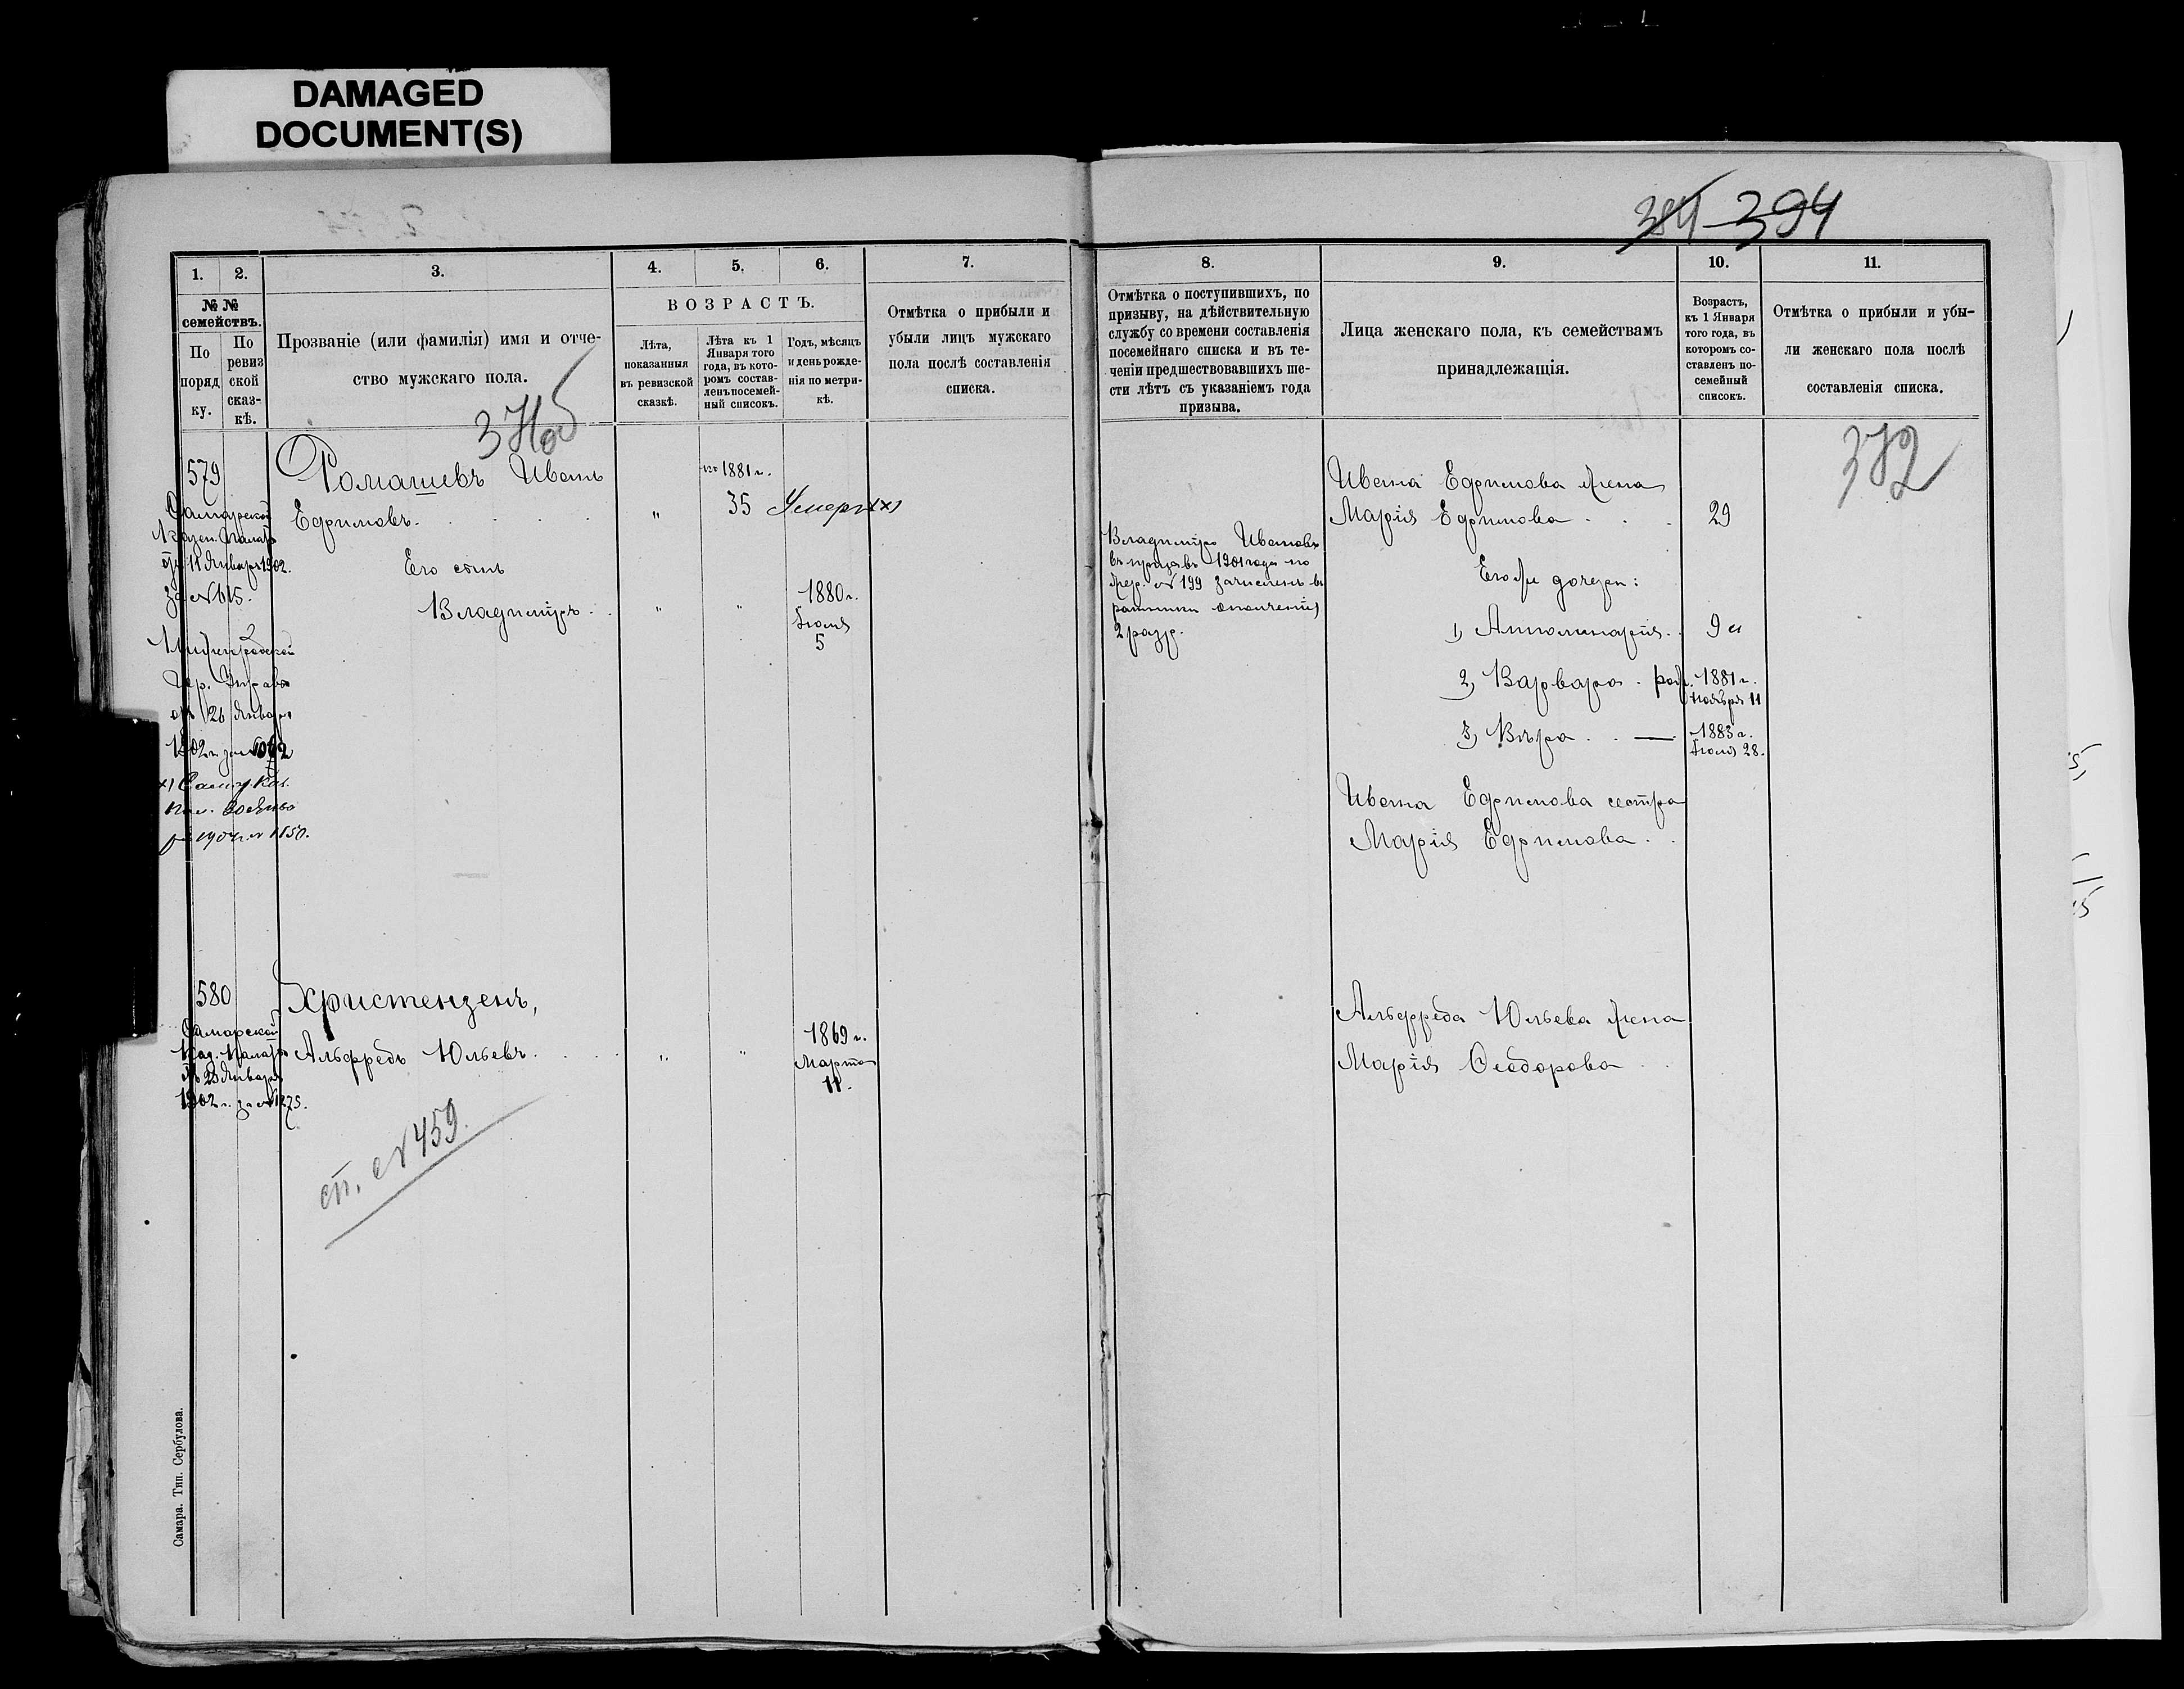 DAMAGED
DOCUMENT(S)
384 - 394
1. 2. 3. 4. 5. 6. 7.
№ №
семействъ.
По поряд ку.
По ревиз ской сказ- кѣ.
Прозваніе (или фамилія) имя и отче-
ство мужскаго пола.
ВОЗРАСТЪ.
Лѣта,
показанныя
въ ревизской
сказкѣ.
Лѣта къ 1
Января того
года, въ кото-
ромъ состав-
ленъ посемей-
ный списокъ.
Годъ, мѣсяцъ
и день рожде-
нія по метри-
кѣ.
Отмѣтка о прибыли и
убыли лицъ мужскаго
пола послѣ составленія
списка.
579
Самарской
Казен. Палаты
отъ 11 Января 1902.
за № 615.
Гор. Управы
отъ 26 Января
1902 г. за №
х) Самар. Каз.
Пал.
1904 г. № 1150.
Ромашевъ Иванъ
Ефимовъ.
" 1881 г.
35 Умеръ х)
Его сынъ
Владиміръ . . " "
1880 г.
Іюля
5
580
Самарской
Каз. Палаты
отъ 23 Января
1902 г. за № 1275.
Христензенъ,
Альфредъ Юльевъ . " "
1869 г.
Марта
11.
сп. № 459.
Самара. Тип. Сербулова.
8. 9. 10. 11.
Отмѣтка о поступившихъ, по
призыву, на дѣйствительную
службу со времени составленія
посемейнаго списка и въ те-
ченіи предшествовавшихъ ше-
сти лѣтъ съ указаніемъ года
призыва.
Лица женскаго пола, къ семействамъ
принадлежащія.
Возрастъ,
къ 1 Января
того года, въ
которомъ со-
ставленъ по-
семейный
списокъ.
Отмѣтка о прибыли и убы-
ли женскаго пола послѣ
составленія списка.
382
Владиміръ Ивановъ
въ призывъ 1901 года по
жер. № 199 зачисленъ въ
ратники ополченія
2 разр.
Ивана Ефимова жена
Марія Ефимова . . . 29
Его же дочери:
1) Апполинарія . . 9
2) Варвара . род. 1881 г.
Ноября 11
3) Вѣра . . — 1883 г.
Іюля 28.
Ивана Ефимова сестра
Марія Ефимова . .
Альфреда Юльева жена
Марія Ѳеодорова . .